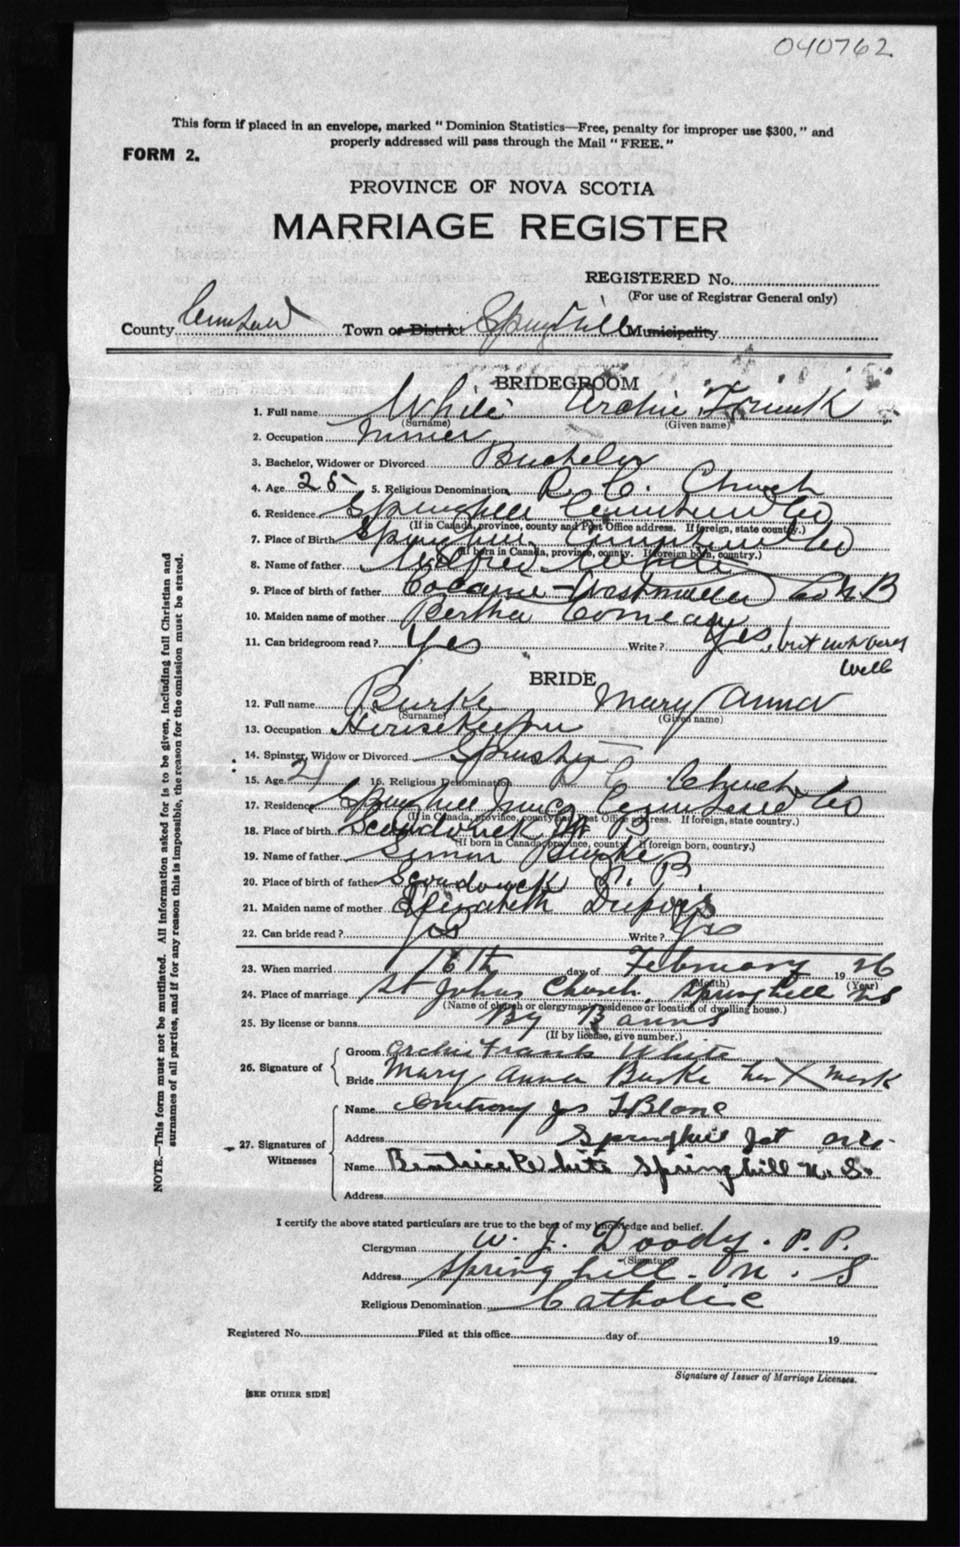 040762
This form if placed in an envelope, marked "Dominion Statistics—Free, penalty for improper use $300," and
properly addressed will pass through the Mail "FREE."
FORM 2.
PROVINCE OF NOVA SCOTIA
MARRIAGE REGISTER
REGISTERED No.
(For use of Registrar General only)
County Town or District Springhill Municipality
BRIDEGROOM
1. Full name White Archie Frank
(Surname) (Given name)
2. Occupation Miner
3. Bachelor, Widower or Divorced Bachelor
4. Age 25 5. Religious Denomination R. C. Church
6. Residence Springhill Co
(If in Canada, province, county and Post Office address. If foreign, state country.)
7. Place of Birth Springhill Co
(If born in Canada, province, county. If foreign born, country.)
8. Name of father Wilfred White
9. Place of birth of father Co N B
10. Maiden name of mother Bertha Comeau
11. Can bridegroom read? Yes Write? Yes, but not very
well
BRIDE
12. Full name Burke Mary Anna
(Surname) (Given name)
13. Occupation Housekeeper
14. Spinster, Widow or Divorced Spinster
15. Age 21 16. Religious Denomination R C Church
17. Residence Springhill Junc Co
(If in Canada, province, county and Post Office address. If foreign, state country.)
18. Place of birth Scoudouck N B
(If born in Canada province, county. If foreign born, country.)
19. Name of father Simon Burke
20. Place of birth of father Scoudouck N. B
21. Maiden name of mother Elizabeth
22. Can bride read? Yes Write? Yes
23. When married 16th day of February 1926
(Month) (Year)
24. Place of marriage St Johns Church, Springhill NS
(Name of church or clergyman's residence or location of dwelling house.)
25. By license or banns By Banns
(If by license, give number.)
26. Signature of Groom Archie Frank White
Bride Mary Anna Burke her X mark
27. Signatures of Witnesses
Name Anthony Js LeBlanc
Address Springhill Jct
Name Beatrice White Springhill N. S.
Address
I certify the above stated particulars are true to the best of my knowledge and belief.
Clergyman W. J. Doody. P. P.
(Signature)
Address Springhill. N. S
Religious Denomination Catholic
Registered No. Filed at this office day of 19
Signature of Issuer of Marriage Licenses.
[SEE OTHER SIDE]
NOTE.—This form must not be mutilated. All information asked for is to be given, including full Christian and
surnames of all parties, and if for any reason this is impossible, the reason for the omission must be stated.